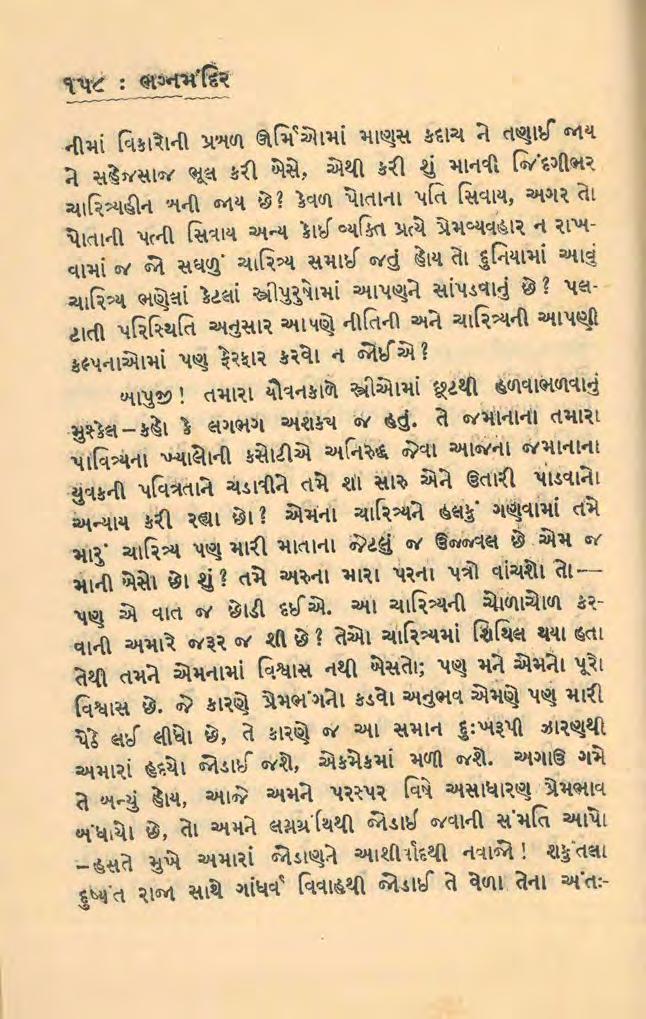 ૧૫૮ : ભગ્નમંદિર
નીમાં વિકારોની પ્રબળ ઊર્મિઓમાં માણસ કદાચ ને તણાઈ જાય
ને સહેજસાજ ભૂલ કરી બેસે, એથી કરી શું માનવી જિંદગીભર
ચારિત્ર્યહીન બની જાય છે? કેવળ પોતાના પતિ સિવાય, અગર તો
પોતાની પત્ની સિવાય અન્ય કોઈ વ્યક્તિ પ્રત્યે પ્રેમવ્યવહાર ન રાખ-
વામાં જ જો સઘળું ચારિત્ર્ય સમાઈ જતું હોય તો દુનિયામાં આવું
ચારિત્ર્ય ભણેલાં કેટલાં સ્ત્રીપુરુષોમાં આપણને સાંપડવાનું છે? પલ-
ટાતી પરિસ્થિતિ અનુસાર આપણે નીતિની અને ચારિત્ર્યની આપણી
કલ્પનાઓમાં પણ ફેરફાર કરવો ન જોઈએ?
બાપુજી! તમારા યૌવનકાળે સ્ત્રીઓમાં છૂટથી હળવાભળવાનું
મુશ્કેલ – કહો કે લગભગ અશક્ય જ હતું. તે જમાનાના તમારા
પાવિત્ર્યના ખ્યાલોની કસોટીએ અનિરુદ્ધ જેવા આજના જમાનાના
યુવકની પવિત્રતાને ચડાવીને તમે શા સારુ એને ઉતારી પાડવાનો
અન્યાય કરી રહ્યા છો? એમના ચારિત્ર્યને હલકું ગણવામાં તમે
મારું ચારિત્ર્ય પણ મારી માતાના જેટલું જ ઉજ્જવલ છે એમ જ
માની બેસો છો શું? તમે અરુના મારા પરના પત્રો વાંચશો તો—
પણ એ વાત જ છોડી દઈએ. આ ચારિત્ર્યની ચોળાચોળ કર-
વાની અમારે જરૂર જ શી છે? તેઓ ચારિત્ર્યમાં શિથિલ થયા હતા
તેથી તમને એમનામાં વિશ્વાસ નથી બેસતો; પણ મને એમનો પૂરો
વિશ્વાસ છે. જે કારણે પ્રેમભંગનો કડવો અનુભવ એમણે પણ મારી
પેઠે લઈ લીધો છે, તે કારણે જ આ સમાન દુઃખરૂપી ઝારણથી
અમારાં હૃદયો જોડાઈ જશે, એકમેકમાં મળી જશે. અગાઉ ગમે
તે બન્યું હોય, આજે અમને પરસ્પર વિષે અસાધારણ પ્રેમભાવ
બંધાયો છે, તો અમને લગ્નગ્રંથિથી જોડાઈ જવાની સંમતિ આપો
–હસતે મુખે અમારાં જોડાણને આશીર્વાદથી નવાજો! શકુંતલા
દુષ્યંત રાજા સાથે ગાંધર્વ વિવાહથી જોડાઈ તે વેળા તેના અંતઃ-